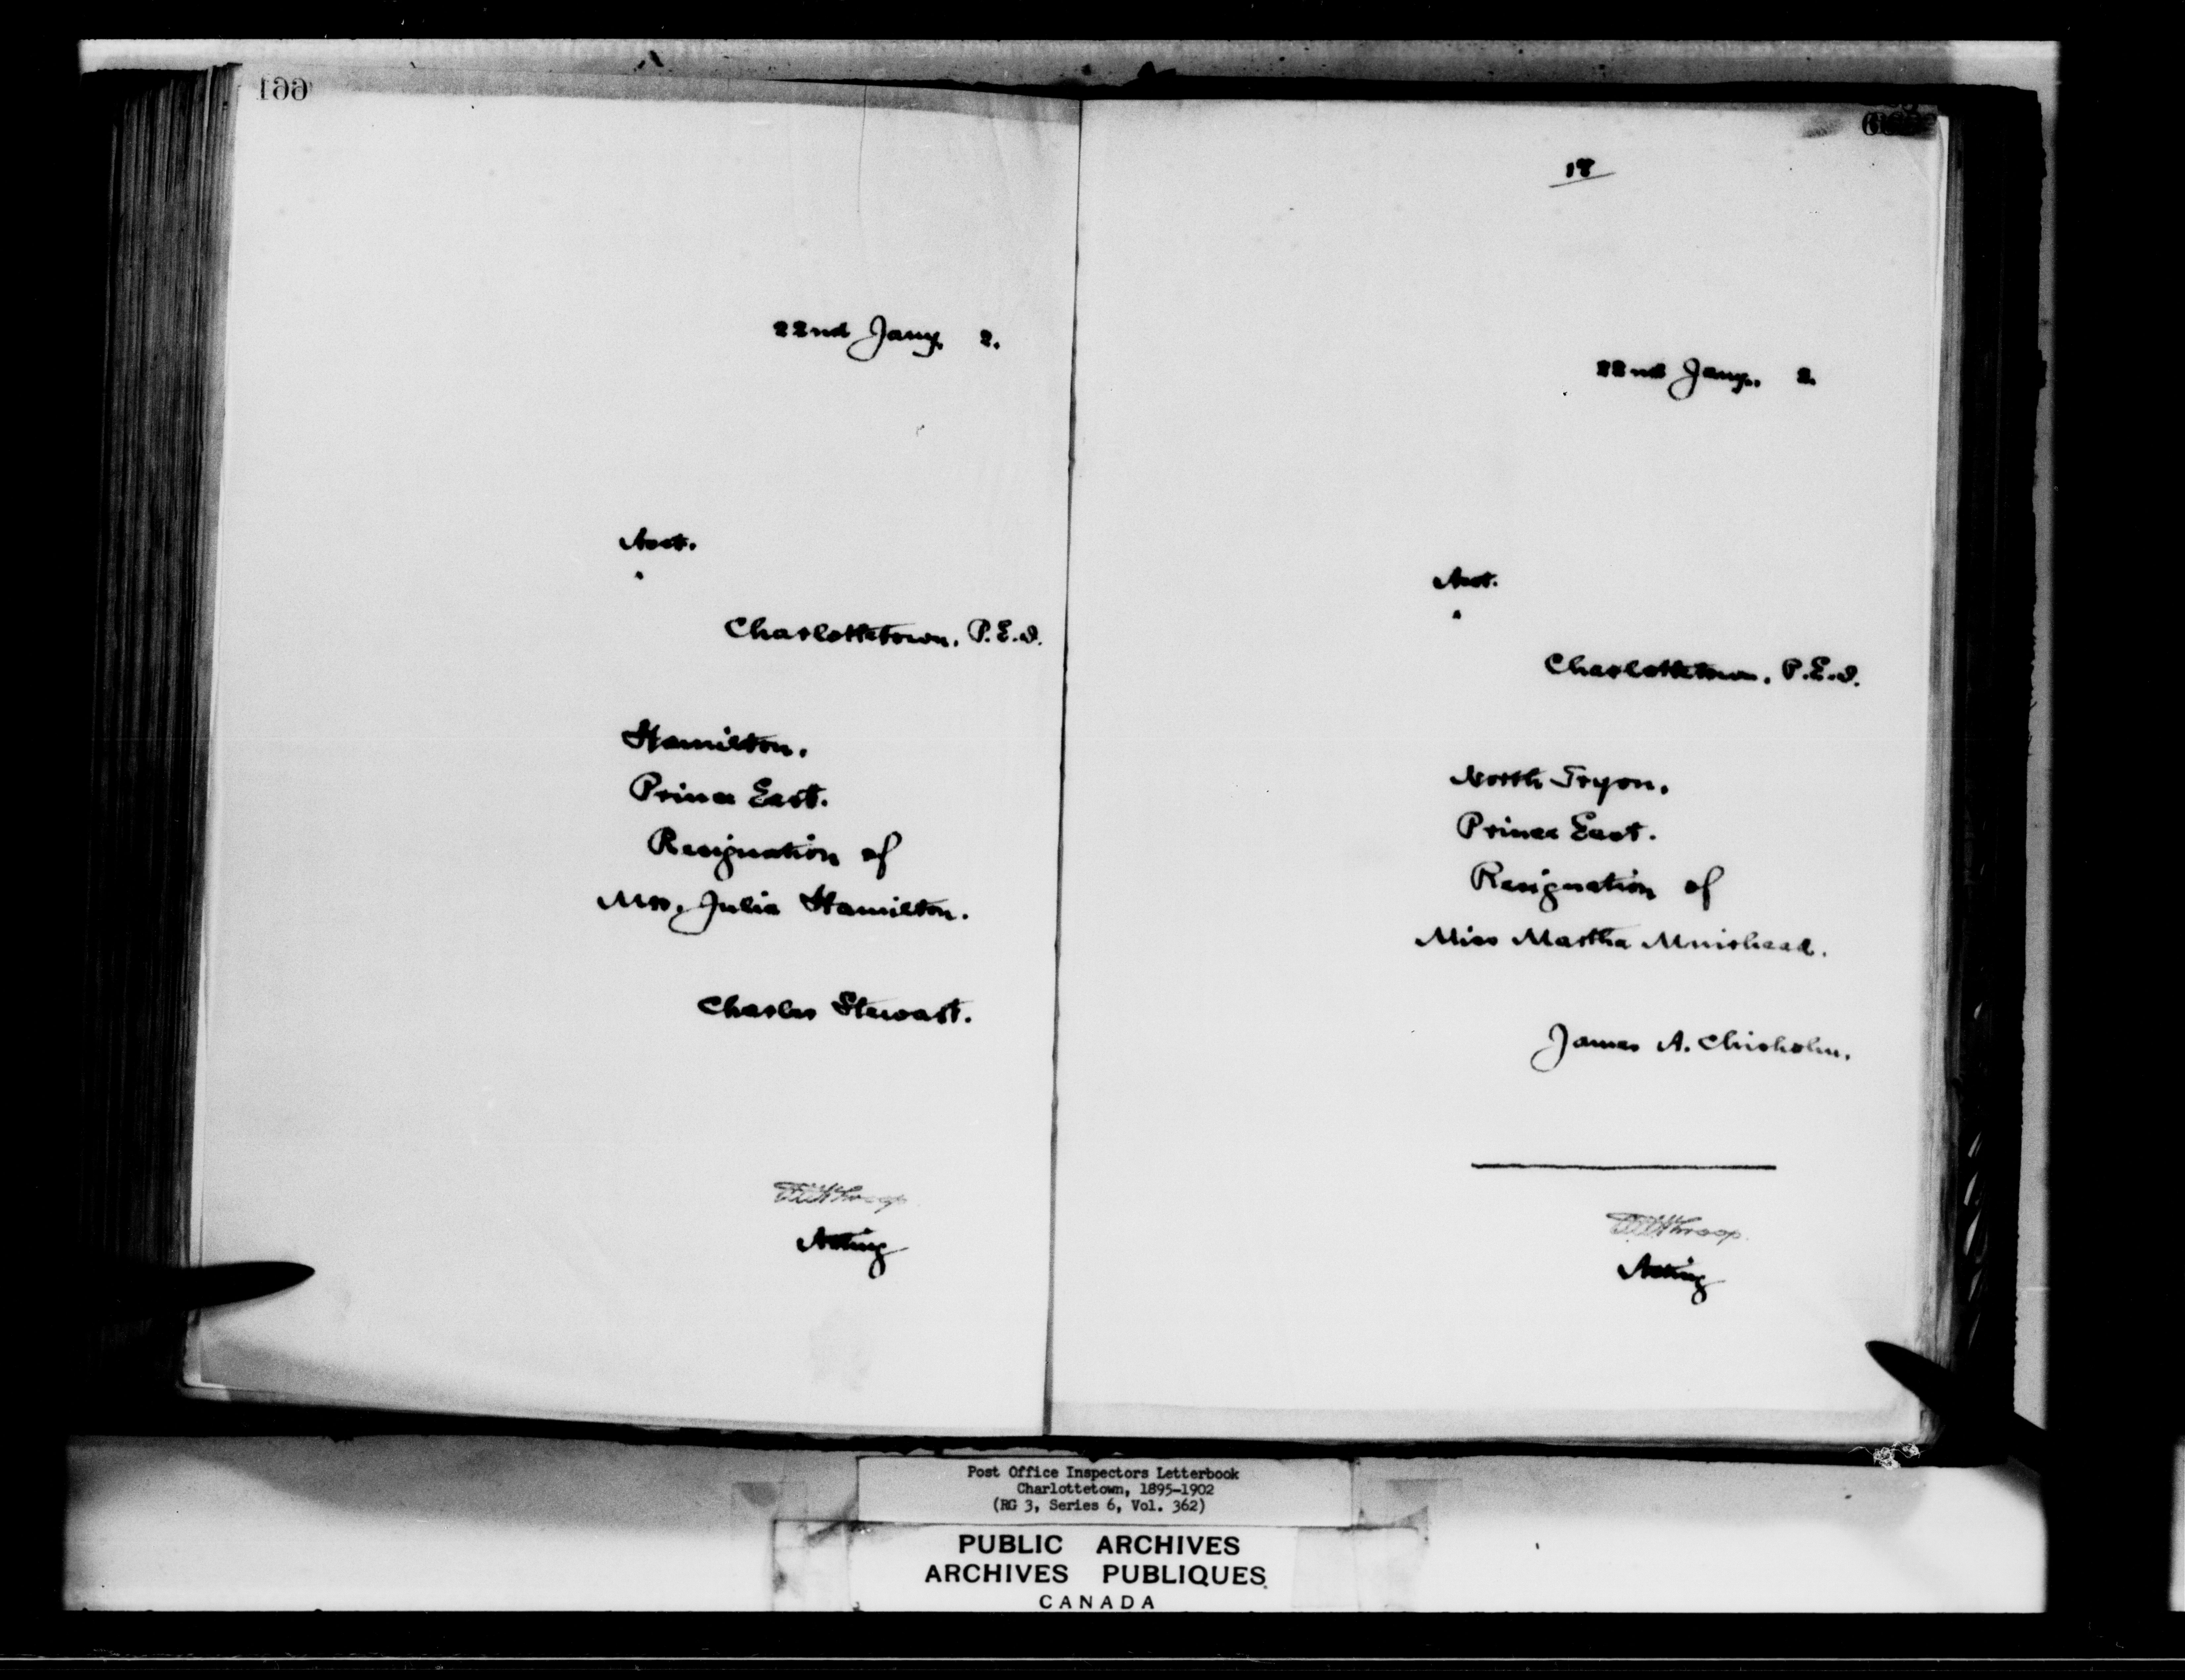 22nd Jany. 2.
Asst.
Charlottetown, P.E.I.
Hamilton.
Prince East.
Resignation of
Mrs. Julia Hamilton.
Charles Stewart.
Acting
18
22nd Jany. 2.
Asst.
Charlottetown, P.E.I.
North Tryon.
Prince East.
Resignation of
Miss Martha Muirhead.
James A. Chisholm.
Acting
Post Office Inspectors Letterbook
Charlottetown, 1895-1902
(RG 3, Series 6, Vol. 362)
PUBLIC ARCHIVES
ARCHIVES PUBLIQUES
CANADA